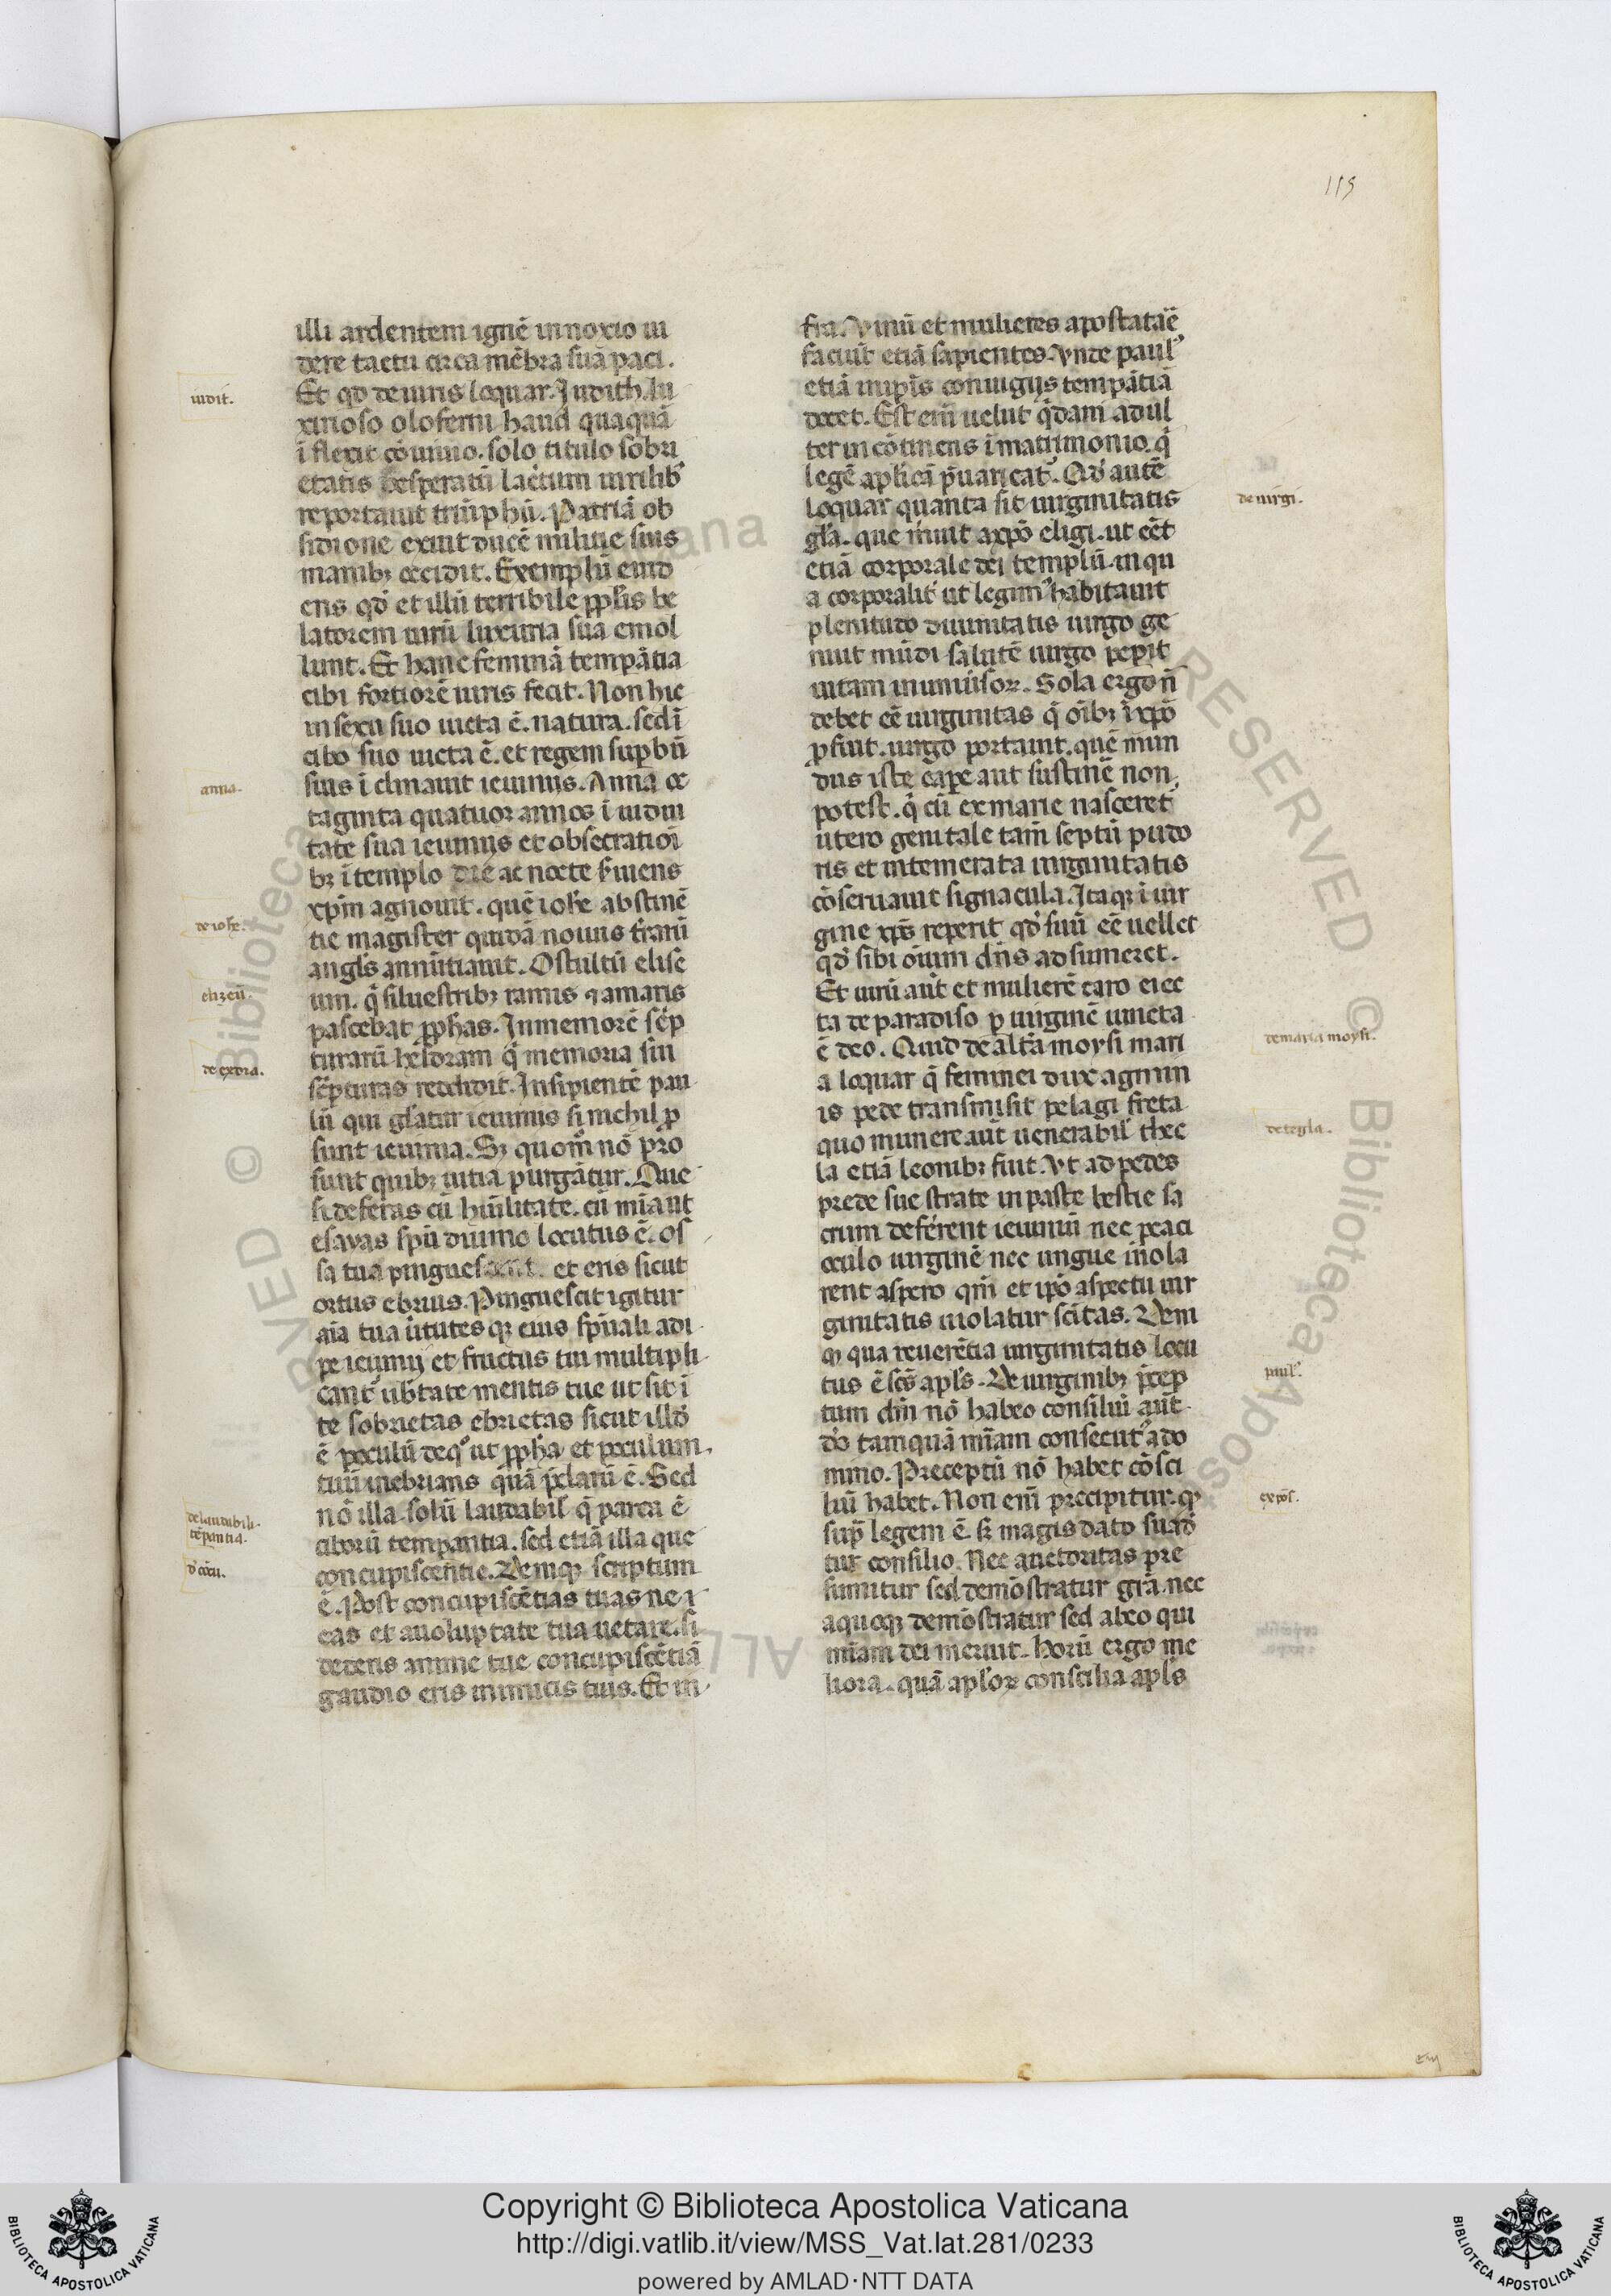 115
illi ardentem ignē innoxio ui
dere tactu circa mēbra sua paci.
Et qd de uiris loquar. Iudith. lu
xurioso oloferni haud quaquā
iflexit cōuiuio. solo titulo sobri
etatis desperatū lacertum uirilib᾽
reportauit triūphū. Patriā ob
sidione exiuit ducē militie suis
manibꝫ occidit. Exemplū euid
ens qd̓ et illū terribile pplis be
latorem uirū luxuria sua emol
lunt. Et hanc feminā tempātia
cibi fortiorē uiris fecit. Non hic
in sexu suo uicta ē. natura. sed ī
cibo suo uicta ē. et regem supbū
suis īclinauit ieiuniis. Anna oc
taginta quatuor annos ī uidui
tate sua ieiuniis et obsecratiōi
bꝫ ī templo die ac nocte s̓uiens
xpm agnouit. quē iohe abstinē
tie magister quidā nouus t̓rarū
angls annūtiauit. O stultū elise
um. q̓ siluestribꝫ ramis ⁊ amaris
pascebat ꝓphas. Inmemorē sc̓p
turarū hesdram q̓ memoria sui
sc̓pturas reddidit. Insipientē pau
lū qui gl̓atur ieiuniis si nichil ꝓ
sunt ieiunia. Sꝫ quom̄ nō pro
sunt quibꝫ uitia purgātur. Que
si deferas cū hūilitate. cū mīa ut
esayas spū diuino locutus ē. os
sa tua pinguescent. et eris sicut
ortus ebrius. Pinguescit igitur
aīa tua ūtutesqꝫ eius sp̄uali adi
pe ieiunij et fructus tui multipli
cant᾽ ub̓tate mentis tue ut sit ī
te sobrietas ebrietas sicut illd̓
ē poculū deq᾽ ut ꝓpha et poculum
tuū inebrians quā p̓clarū ē. Sed
nō illa solū laudabil̓ q̓ parca ē
ciborū tempantia. sed etiā illa que
concupiscentie. Deniqꝫ scriptum
ē. Post concupiscētias tuas ne ⁊
eas et a uoluptate tua uetare. si
dederis anime tue concupiscētiā
gaudio eris inimicis tuis. Et in
fra. Vinū et mulieres apostatar̄e
faciūt etiā sapientes. Vnde paul᾽
etiā in ip̄is coniugiis tempātiā
docet. Est em̄ uelut q̓dam adul
ter incōtinens ī matrimonio. q̓
legē ap̄licā p̓uaricat᾽. Qd̓ autē
loquar quanta sit uirginitatis
gl̓a. que m̓uit a xp̄o eligi. ut eēt
etiā corporale dei templū. in qu
a corporalit̓ ut legim᾽ habitauit
plenitudo diuinitatis uirgo ge
nuit mūdi salutē uirgo pepit
uitam uniuisorꝫ. Sola ergo n̄
debet eē uirginitas q̓ oībꝫ ī xp̄o
ꝓfuit. uirgo portauit. quē mun
dus iste cape aut sustinē non
potest. q̓ cū ex marie nasceret᾽
utero genitale tam̄ septū pudo
ris et intemerata uirginitatis
cōseruauit signacula. Itaqꝫ ī uir
gine xp̄s reperit qd̓ suū eē uellet
qd̓ sibi oīum dn̄s adsumeret.
Et uirū aūt et mulierē caro eiec
ta de paradiso ꝑ uirginē uincta
ē deo. Quid de alt̓a moysi mari
a loquar q̓ feminei dux agmin
is pede transmisit pelagi freta
quo munere aūt uenerabil̓ thec
la etiā leonibꝫ fuit. Vt ad pedes
prede sue strate inpaste bestie sa
crum deferent ieiuniū nec pcaci
oculo uirginē nec ungue uiola
rent aspero qm̄ et ip̄o aspectu uir
ginitatis uiolatur sc̄itas. Dem
ꝙ qua reuerētia uirginitatis locu
tus ē sc̄s apl̓s. De uirginibꝫ p̓cep
tum dn̄i nō habeo consiliū aūt
do tamquā mīam consecut᾽ a do
mino. Preceptū nō habet cōsci
liū habet. Non em̄ precipitur. ꝙ
sup̄ legem ē. s̓ magis dato suad̓
tur consilio. Nec auctoritas pre
sumitur sed demōstratur gr̄a. nec
a quoqꝫ demōstratur sed ab eo qui
mīam dei meruit. Horū ergo me
liora. quā apl̓orꝫ conscilia apl̓s
iudit.
anna.
de iohe.
elizeū.
de exdra.
de laudabili
tēpantia.
de uirgi.
de maria moysi.
de tegla.
paul᾽.
expōs.
Copyright © Biblioteca Apostolica Vaticana
http://digi.vatlib.it/view/MSS_Vat.lat.281/0233
powered by AMLAD·NTT DATA
BIBLIOTECA APOSTOLICA VATICANA
BIBLIOTECA APOSTOLICA VATICANA